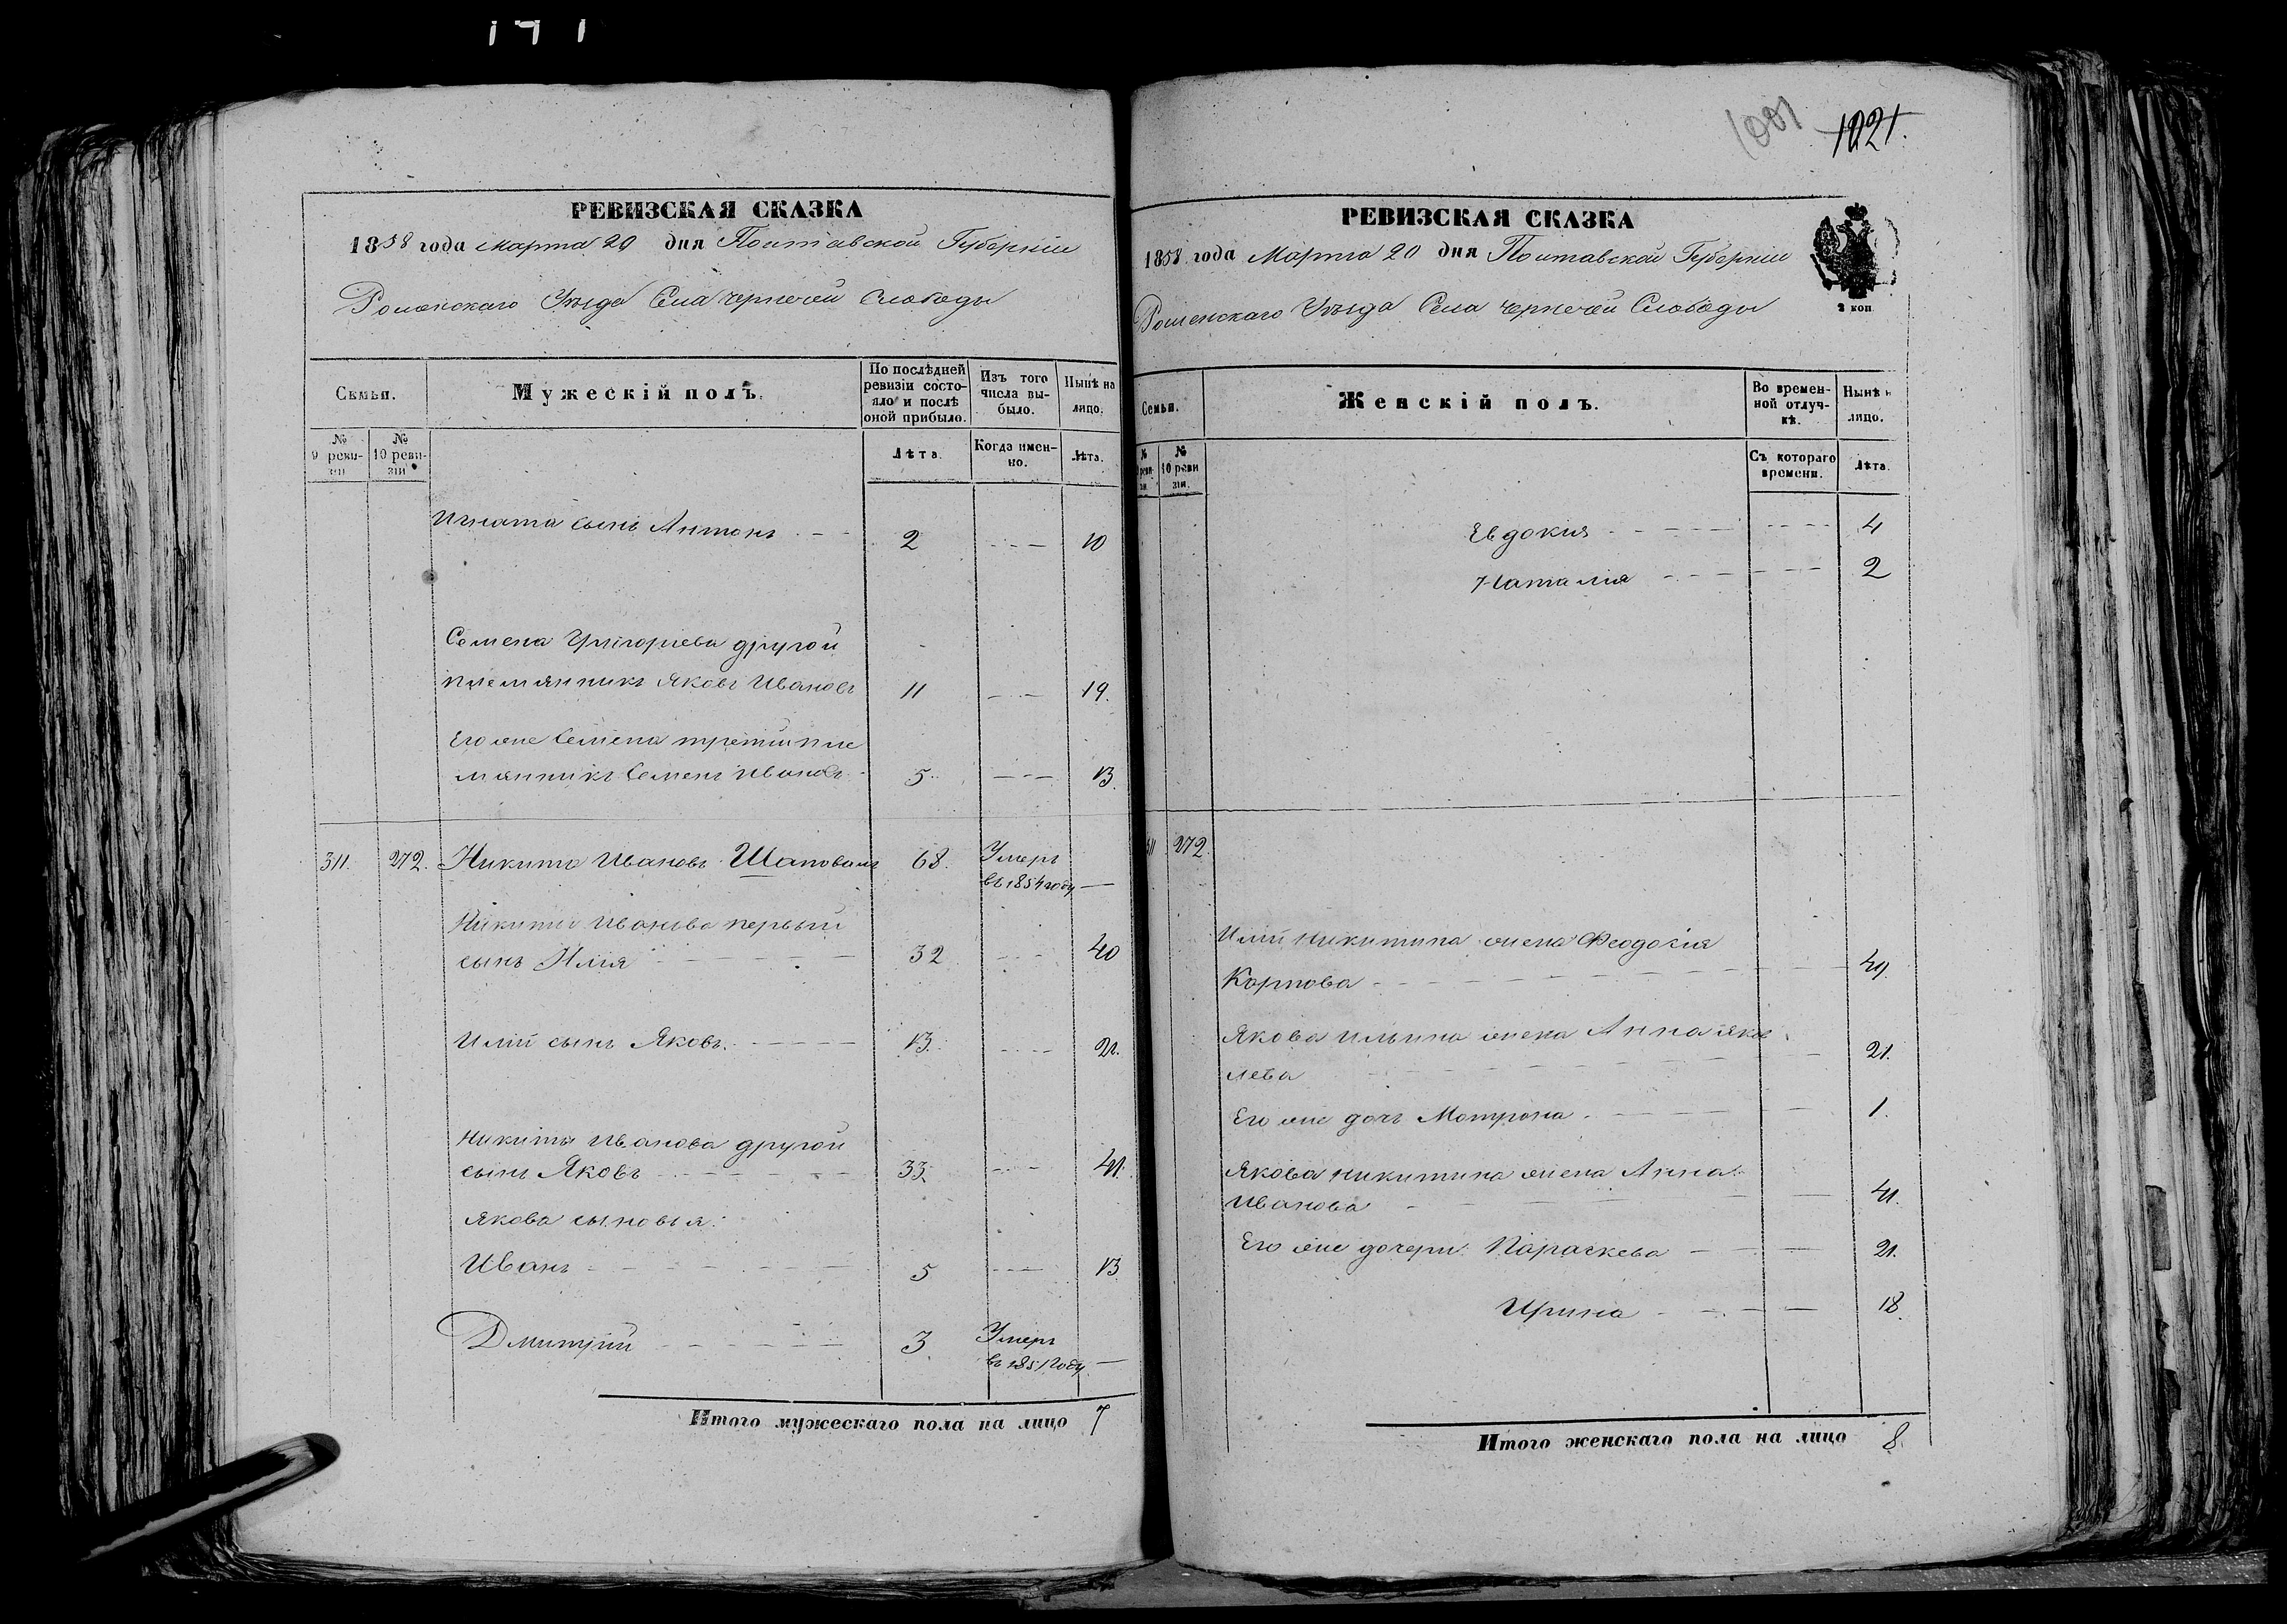 1001 1021.
РЕВИЗСКАЯ СКАЗКА
1858 года Марта 20 дня Полтавской Губерніи
Роменскаго Уѣзда Села Чернечей Слободы
Семьи.
Мужескій полъ.
По послѣдней ревизіи состояло и послѣ оной прибыло.
Изъ того числа выбыло.
Нынѣ на лицо.
№ 9 ревизіи
№ 10 ревизіи
Лѣта.
Когда именно.
Лѣта.
Игната сынъ Антонъ 2 10
Семена Григорьева другой
племянникъ Яковъ Ивановъ 11 19.
Его же Семена третій пле
мянникъ Семенъ Ивановъ 5 13.
311. 272. Никита Ивановъ Шаповалъ 68. Умеръ
въ 1854 году
Никиты Иванова первый
сынъ Илія 32 40
Иліи сынъ Яковъ 13. 21.
Никиты Иванова другой
сынъ Яковъ 33. 41.
Якова сыновья:
Иванъ 5 13
Дмитрій 3. Умеръ
въ 1851 году
Итого мужескаго пола на лицо 7
РЕВИЗСКАЯ СКАЗКА
1858 года Марта 20 дня Полтавской Губерніи
Роменскаго Уѣзда Села Чернечей Слободы
2 коп
Семьи.
Женскій полъ.
Во временной отлучкѣ.
Нынѣ н лицо.
№ 10 ревизіи.
Съ котораго времени.
Лѣта.
Евдокия 4
Наталія 2
272.
Иліи Никитина жена Феодосия
Карпова 49.
Якова Ильина жена Анна Яков
лева 21.
Его же дочь Мотрона 1.
Якова Никитина жена Анна
Иванова 41.
Его же дочери: Параскева 21.
Ирина 18.
Итого женскаго пола на лицо 8.